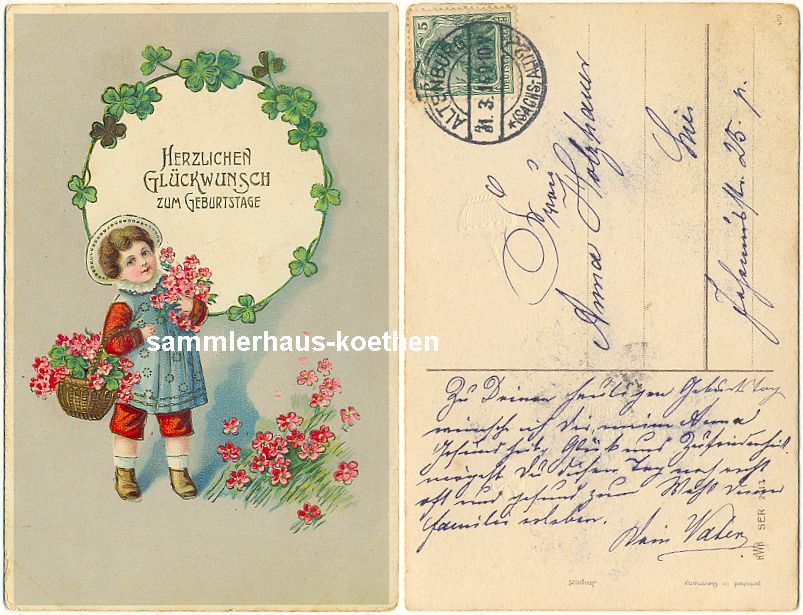 HERZLICHEN
GLÜCKWUNSCH
ZUM GEBURTSTAGE
sammlerhaus-koethen
5
ALTENBURG
31.3.
*(SACHS.-ALT.)
Frau
Anna Holzhauer
hier
Johannisstr. 25. p.
Zu Deinem heutigen Geburtstag
wünsch ich dir, meine Anna
Gesundheit, Glück und Zufriedenheit
mögest Du diesen Tag noch recht
oft und gesund zum Wohl deiner
Familie erleben.
Dein Vater
HWB SER
printed in Germany
Import